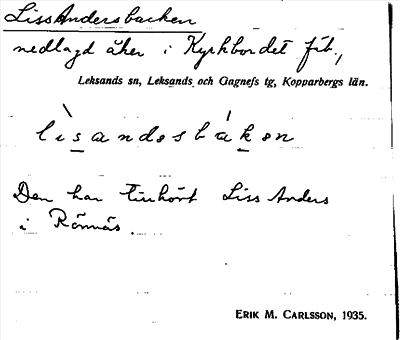 LissAndersbacken
nedlagd åker i Kyrkbordet fäb.,
Leksands sn, Leksands och Gagnefs tg, Kopparbergs län.
lìsandəsbákən
Den har tillhört Liss Anders
i Rönnäs.
ERIK M. CARLSSON, 1935.